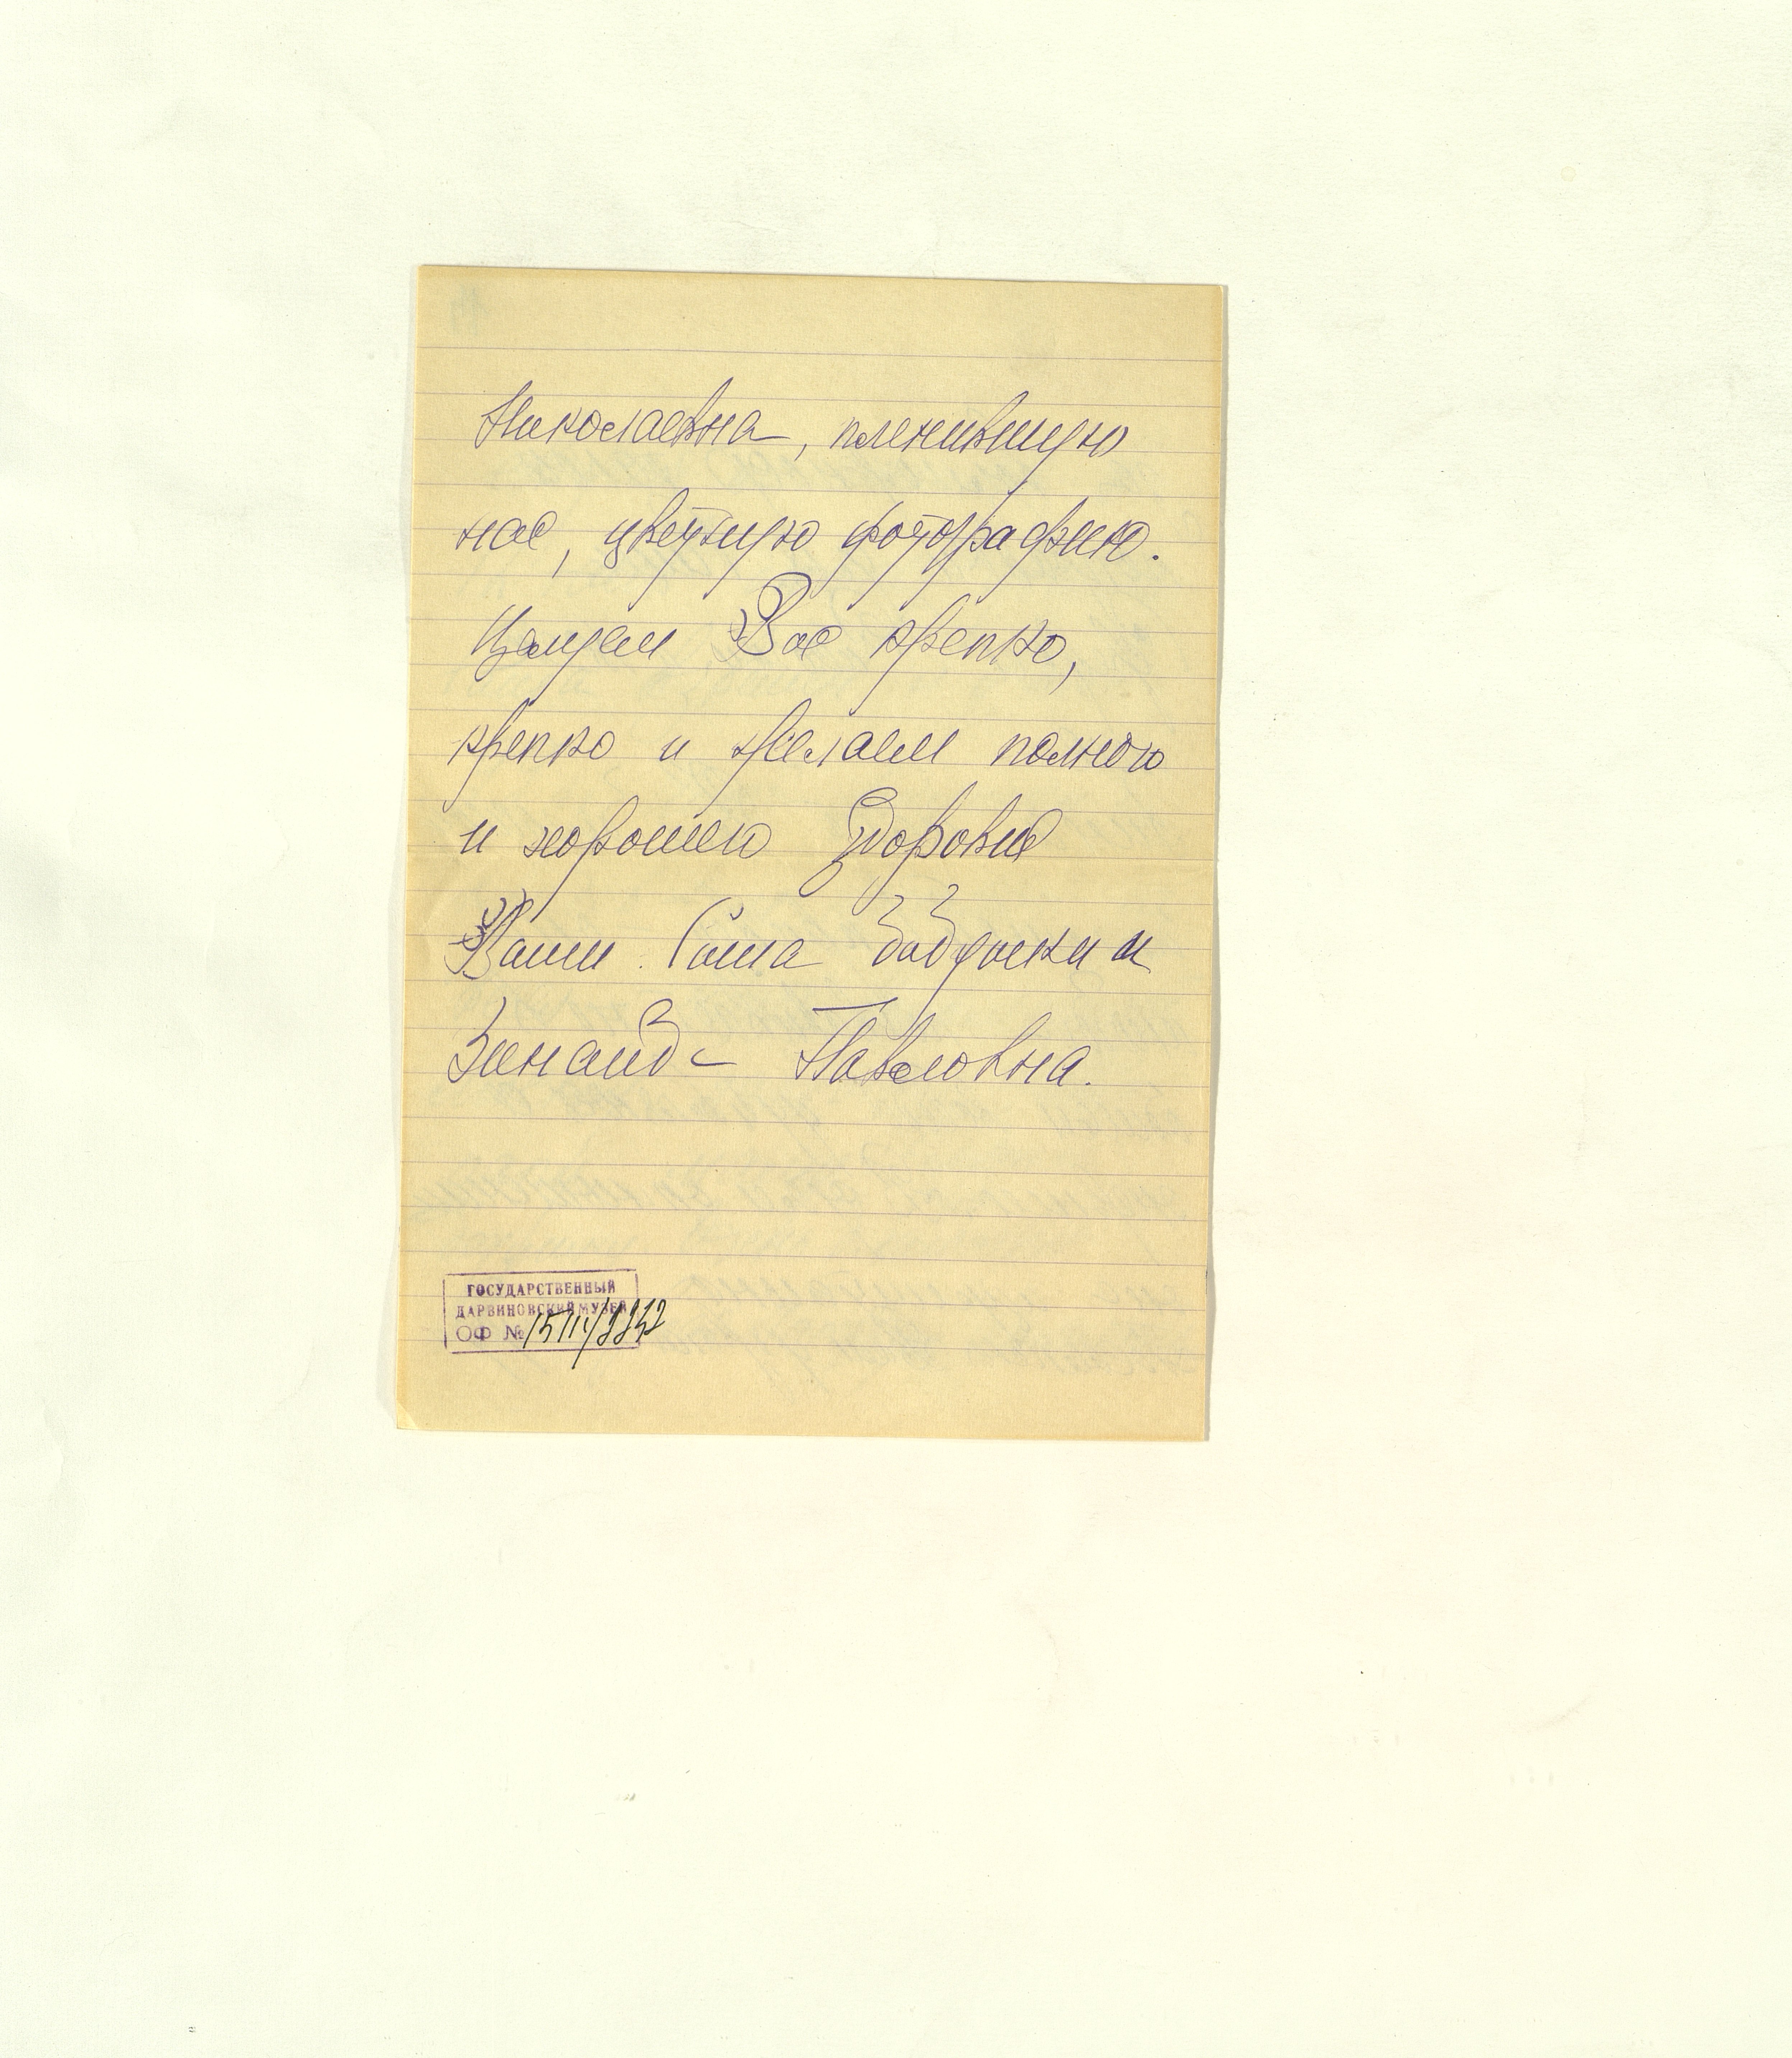 Николаевна, пленившую
нас, цветную фотографию.
Целуем Вас крепко,
крепко и желаем полного
и хорошего здоровья
Ваши Гоша
Зинаида Павловна.
ГОСУДАРСТВЕННЫЙ
ДАРВИНОВСКИЙ МУЗЕЙ
ОФ №